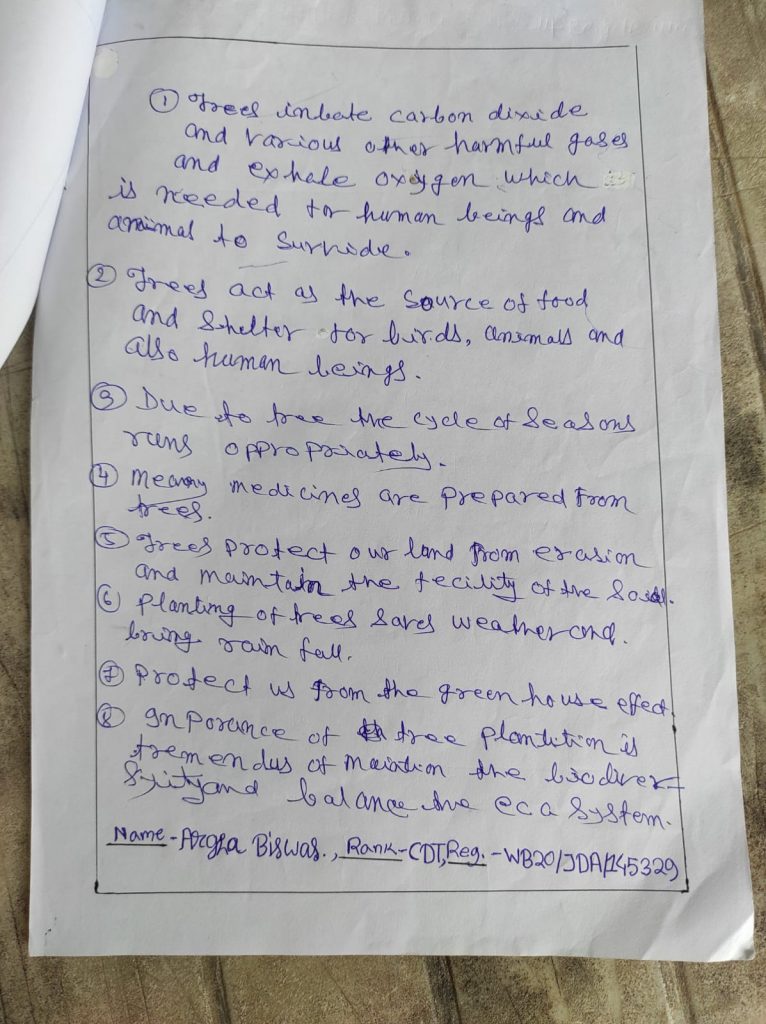 ① Trees inhate carbon dixide
and various other harmful gases
and exhale oxygen which
is needed for human beings and
animal to survide.
② Trees act as the source of food
and shelter for birds, animals and
also human beings.
③ Due to tree the cycle of seasons
runs oppropriately.
④ meany medicines are prepared from
trees.
⑤ Trees protect our land from erasion
and maintain the fecility of the soil.
⑥ planting of trees saves weather and.
bring rain fall.
⑦ Protect us from the green house effect
⑧ Inporance of tree plantition is
tremendus of maintion the biodiver-
sity and balance the eca system.
Name - Argha Biswas., Rank-CDT, Reg. - WB20/JDA/145329